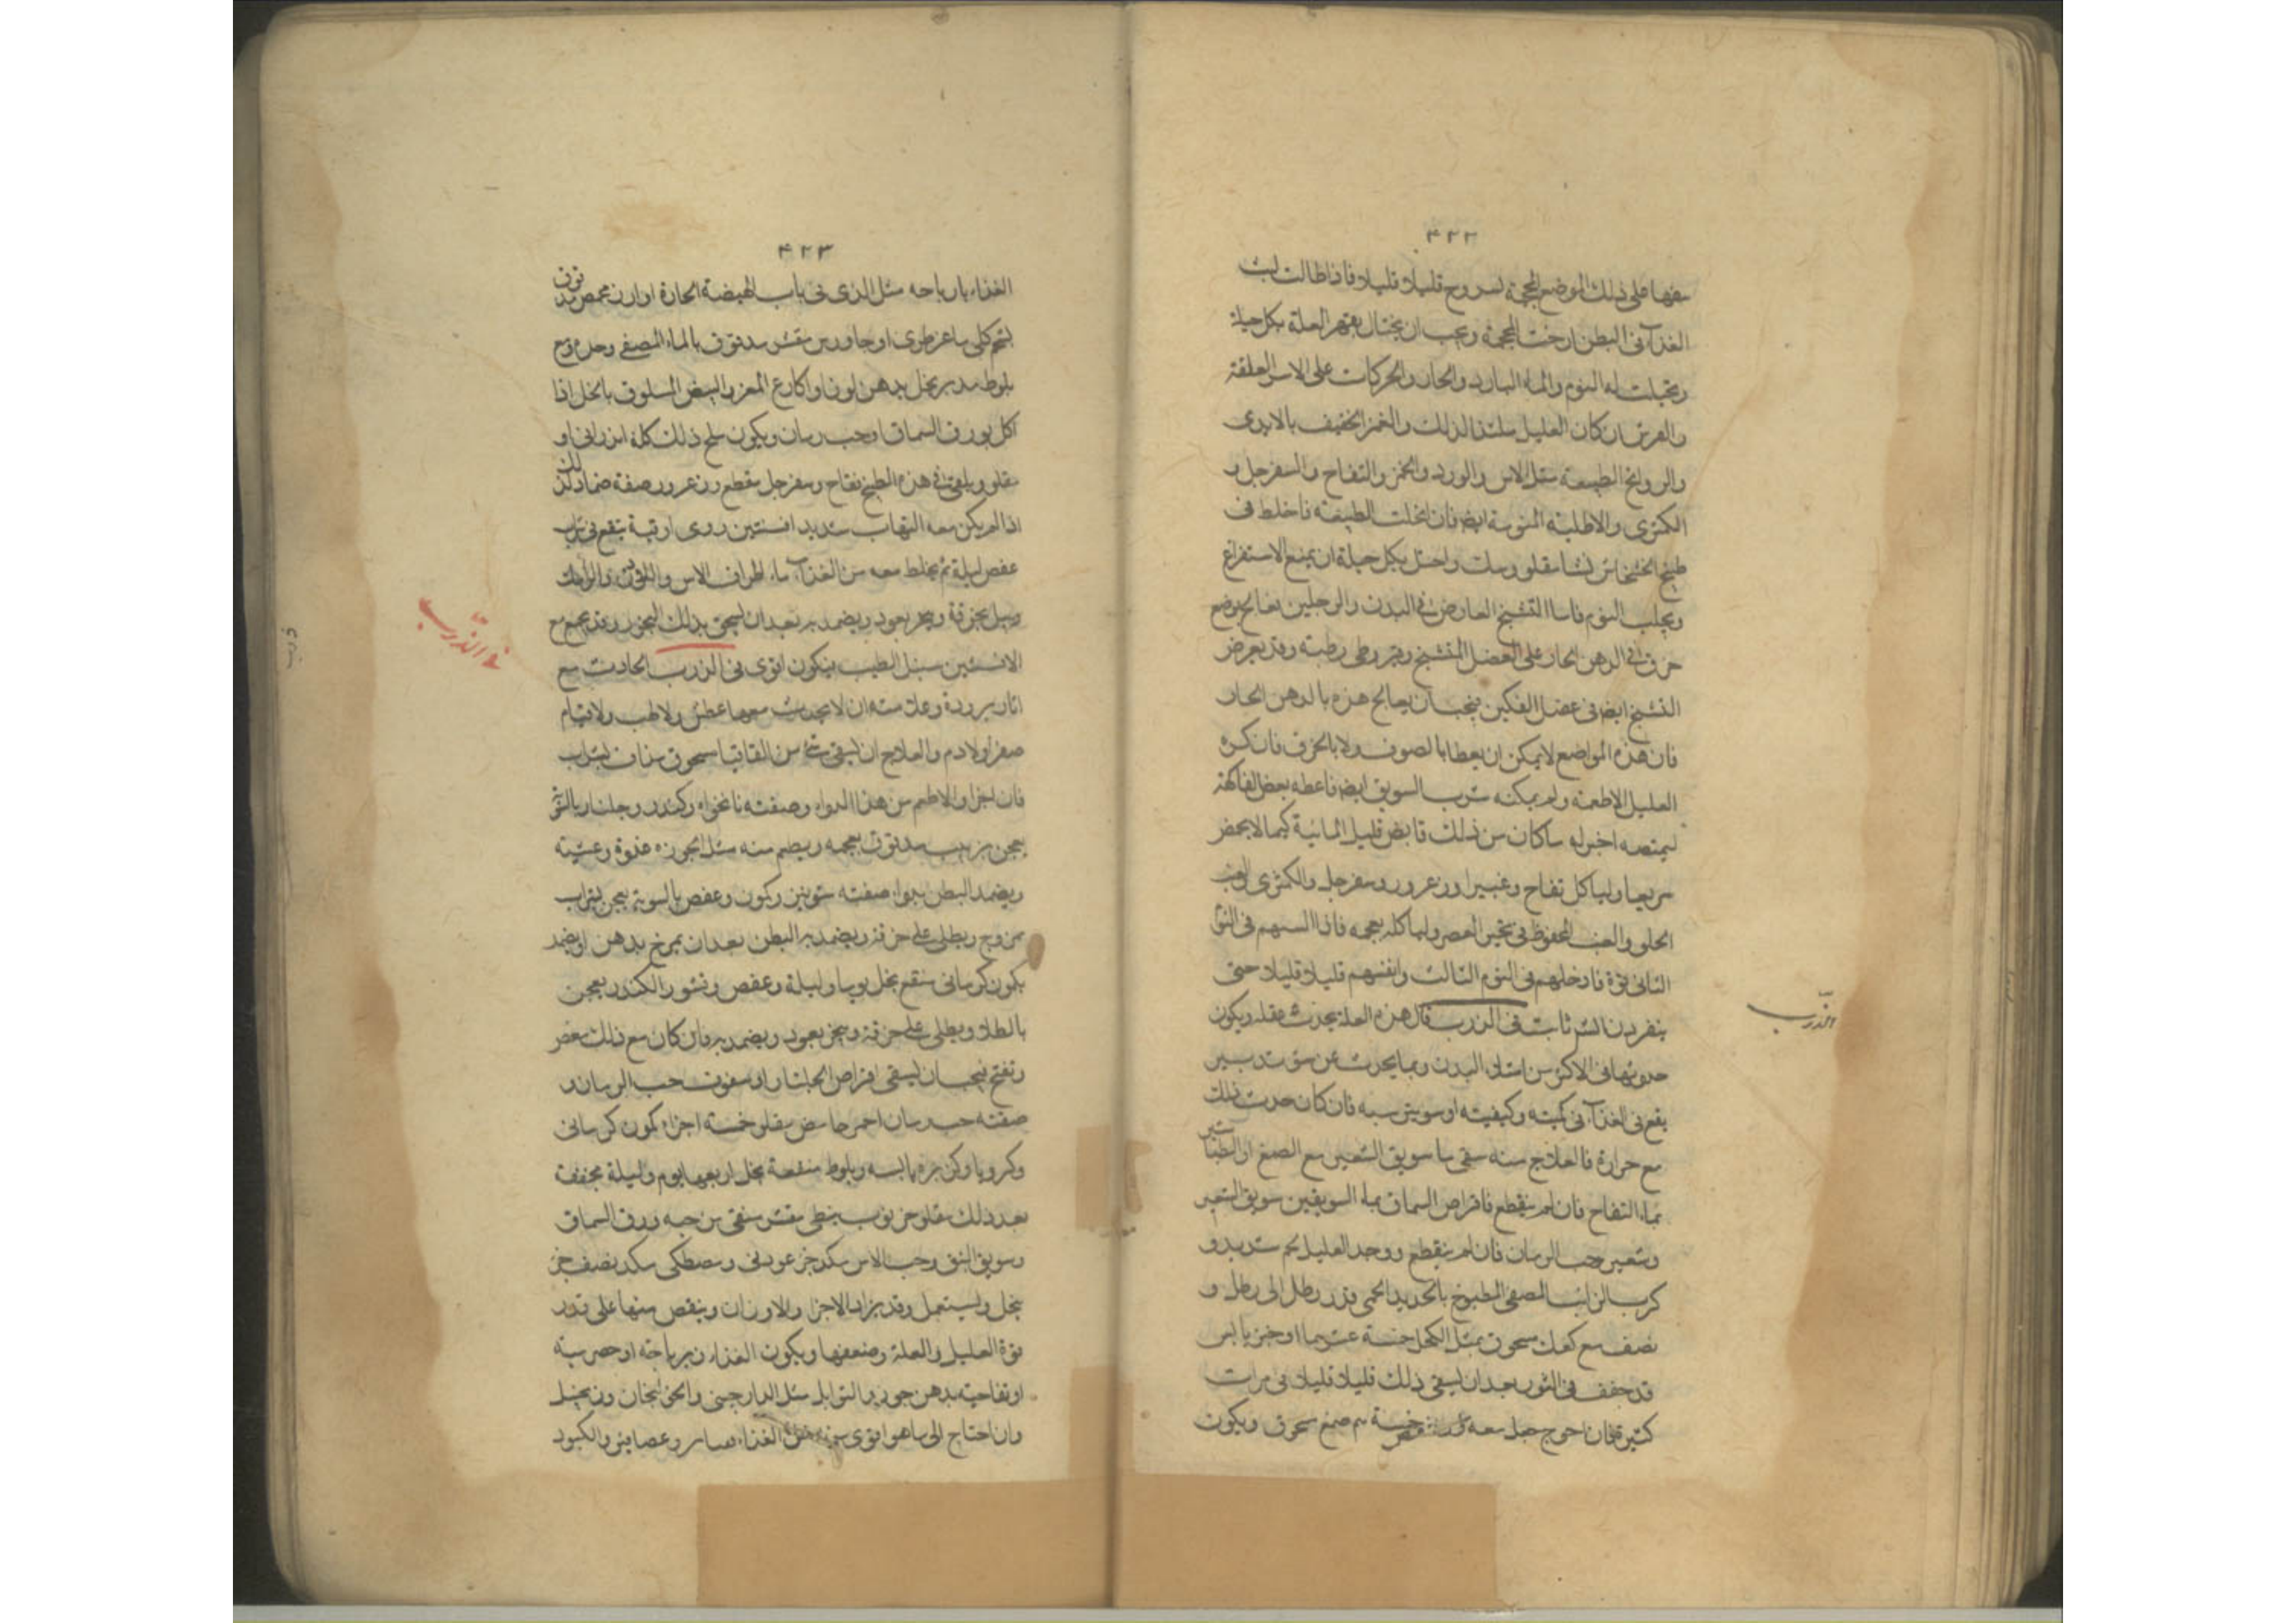 ٤٢٢
الغذاء فى البطن ارخت المحجمة ويجب ان يحتال بعدهم العلة بكل حيلة
ويجتلب له النوم والماء البارد والحار والحركات على الاسرة المعلقة
والفرش ان كان العليل ملتذا لذلك والغمز الخفيف بالايدى
والروايح الطيبة مثل الاس والورد والخمر والتفاح والسفرجل و
الكمثرى والاطلية المنومة ايضا فان انحلت الطبيعة فاخلط فى
طبيخ الخشخاش نشا مقلو واحتل بكل حيلة ان يمنع الاستفراغ
ويجلب النوم فاما التشنج العارض فى اليدين والرجلين فعالج بوضع
خرق فى الدهن الحار على العضل المتشنج وقيروطى رطبة وقد يعرض
التشنج ايضا فى عضل الفكين فيجب ان يعالج هذه بالدهن الحار
فان هذه المواضع لا يمكن ان يغطا بالصوف ولا بالخرق فان كره
العليل الاطعمة ولم يمكنه شرب السويق ايضا فاعطه بعض الفاكهة
ليمتصه اختر له ما كان من ذلك قابض قليل المائية كيما لا يحمض
سريعا ولياكل تفاح وغبيرا وزعرور وسفرجل والكمثرى
الحلو والعنب المحفوظ فى ثجير العصر ولياكله بعجمه فاذا
الثانى قوة فادخلهم فى اليوم الثالث قليلا قليلا حتى
فى الذرب قال هذه العلة تحدث ويكون
حدوثها فى الاكثر من امتلاء البدن وبما يحدث عن سوء تدبير
يقع فى الغذاء فى كميته وكيفيته او سوء ترتيبه فان كان حدث ذلك
مع حرارة فالعلاج منه سقى ما سويق الشعير مع الصمغ او الطباشير
بماء التفاح فان لم ينقطع فاقراص السماق بماء السويقين سويق الشعير
وشعير وحب الرمان فان لم ينقطع ووجد العليل شديد و
كرب المصفى المطبوخ بالحديد المحمى قدر رطل الى رطل و
نصف مع كعك مسحوق مثل الكحل خمسة عشر درهما او خبز يابس
قد جفف فى التنور بعد ان يسقى ذلك قليلا قليلا فى مرات
كثيرة فان احوج جعل معه خمسة صمغ مسحوق ويكون
الذرب
٤٢٣
الغذاء مثل الذى فى باب الهيضة الحارة او ارز محمص مدقوق
بشحم كلى ماعز طرى او جاورس مقشر مدقوق بالماء المصفى
بلوط مدبر بخل بدهن لوز او اكارع المعز والبيض المسلوق بالخل اذا
اكل بورق السماق او حب رمان ويكون ملح ذلك كله اندرانى او
مقلو ويلقى فى هذه الطبيخ تفاح وسفرجل مقطع وزعرور صفة ضماد لذلك
اذا لم يكن معه التهاب شديد افسنتين رومى اوقية ينقع فى شراب
عفص ليلة ثم يخلط معه من الغد ماء اطراف الاس
ويبل بخرقة ويبخر بعود ويضمد به بعد ان يسخن بذلك البخور وقد يجمع مع
الافسنتين سنبل الطيب فيكون اقوى فى الذرب الحادث مع
اثار برودة وعلامته ان لا يحدث معها عطش ولا لهب ولا قيام
صفرا ولا دم والعلاج ان يسقى شئ من القاقيا مسحوق مداف بشراب
فان اجزا والا طعم من هذا الدواء وصفته نانخواه وكندر وجلنار بالسوية
يعجن بزبيب مدقوق بعجمه ويطعم منه مثل الجوزة غدوة وعشية
ويضمد البطن بدواء صفته شونيز وكمون وعفص بالسوية يعجن بشراب
ممزوج ويطلى على خرقة ويضمد به البطن بعد ان يمرخ بدهن او يضمد
بكمون كرمانى منقع بخل يوما وليلة وعفص وقشور الكندر يعجن
بالطلا ويطلى على خرقة ويبخر بعود ويضمد به وان كان مع ذلك مغص
ونفخ فيجب ان يسقى اقراص الجلنار او سفوف حب الرمان و
صفته حب رمان احمر حامض مقلو خمسة اجزاء كمون كرمانى
وكرويا وكزبره يابسه وبلوط منقعة بخل اربعها يوم وليلة مجففة
بعد ذلك مقلو خرنوب نبطى مقشر منقى من حبه ورق السماق
وسويق النبق وحب الاس مكد جزء عود نى ومصطكى مكد نصف جزء
ينخل ويستعمل وقد يزاد الاجزا والاوزان وينقص منها على قدر
قوة العليل والعلة وضعفها ويكون الغذاء زيرباجه او حصرمية
او تفاحية بدهن جوز والتوابل مثل الدارجينى والخولنجان وزنجبيل
وان احتاج الى ما هو اقوى الغذاء وعصافير والكبود
فى الذرب
ذرب